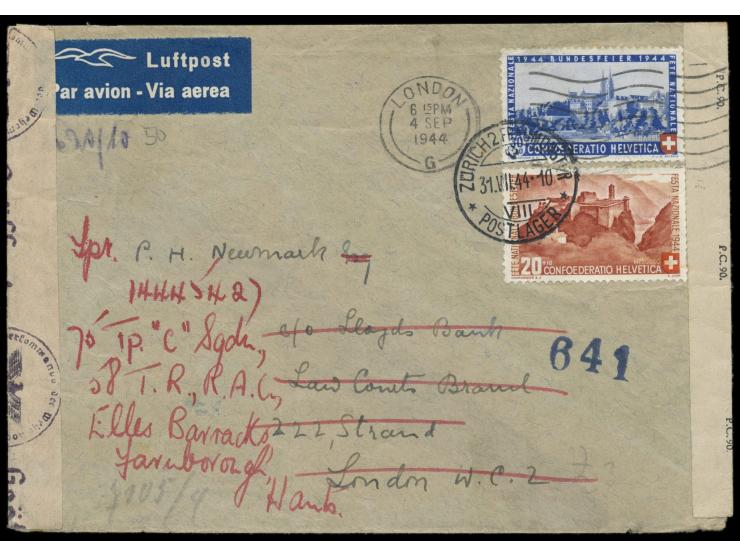 Luftpost
Par avion - Via aerea
LONDON
6 15PM
4 SEP
1944
G
1944 BUNDESFEIER 1944
FESTA NAZIONALE
FETE NATIONALE
CONFOEDERATIO HELVETICA
ZÜRICH 2
31.VII.44-10
VIII
POSTLAGER
FESTA NAZIONALE 1944
20+10 CONFOEDERATIO HELVETICA
P.C. 90.
P.C. 90.
P.C. 90.
50
Spr. P. H. Newmark
14447342)
Tp. "C" Sqdn., c/o Lloyds Bank
641
58 T.R., R.A.C., Law Courts Branch
Elles Barracks 222, Strand
Farnborough, London W.C.2
Hants.